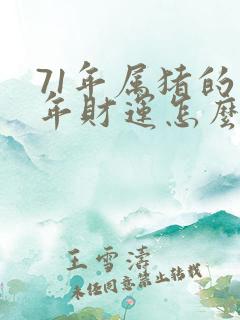 71年属猪的
年财运怎麽
王雪涛
未经同意禁止转载